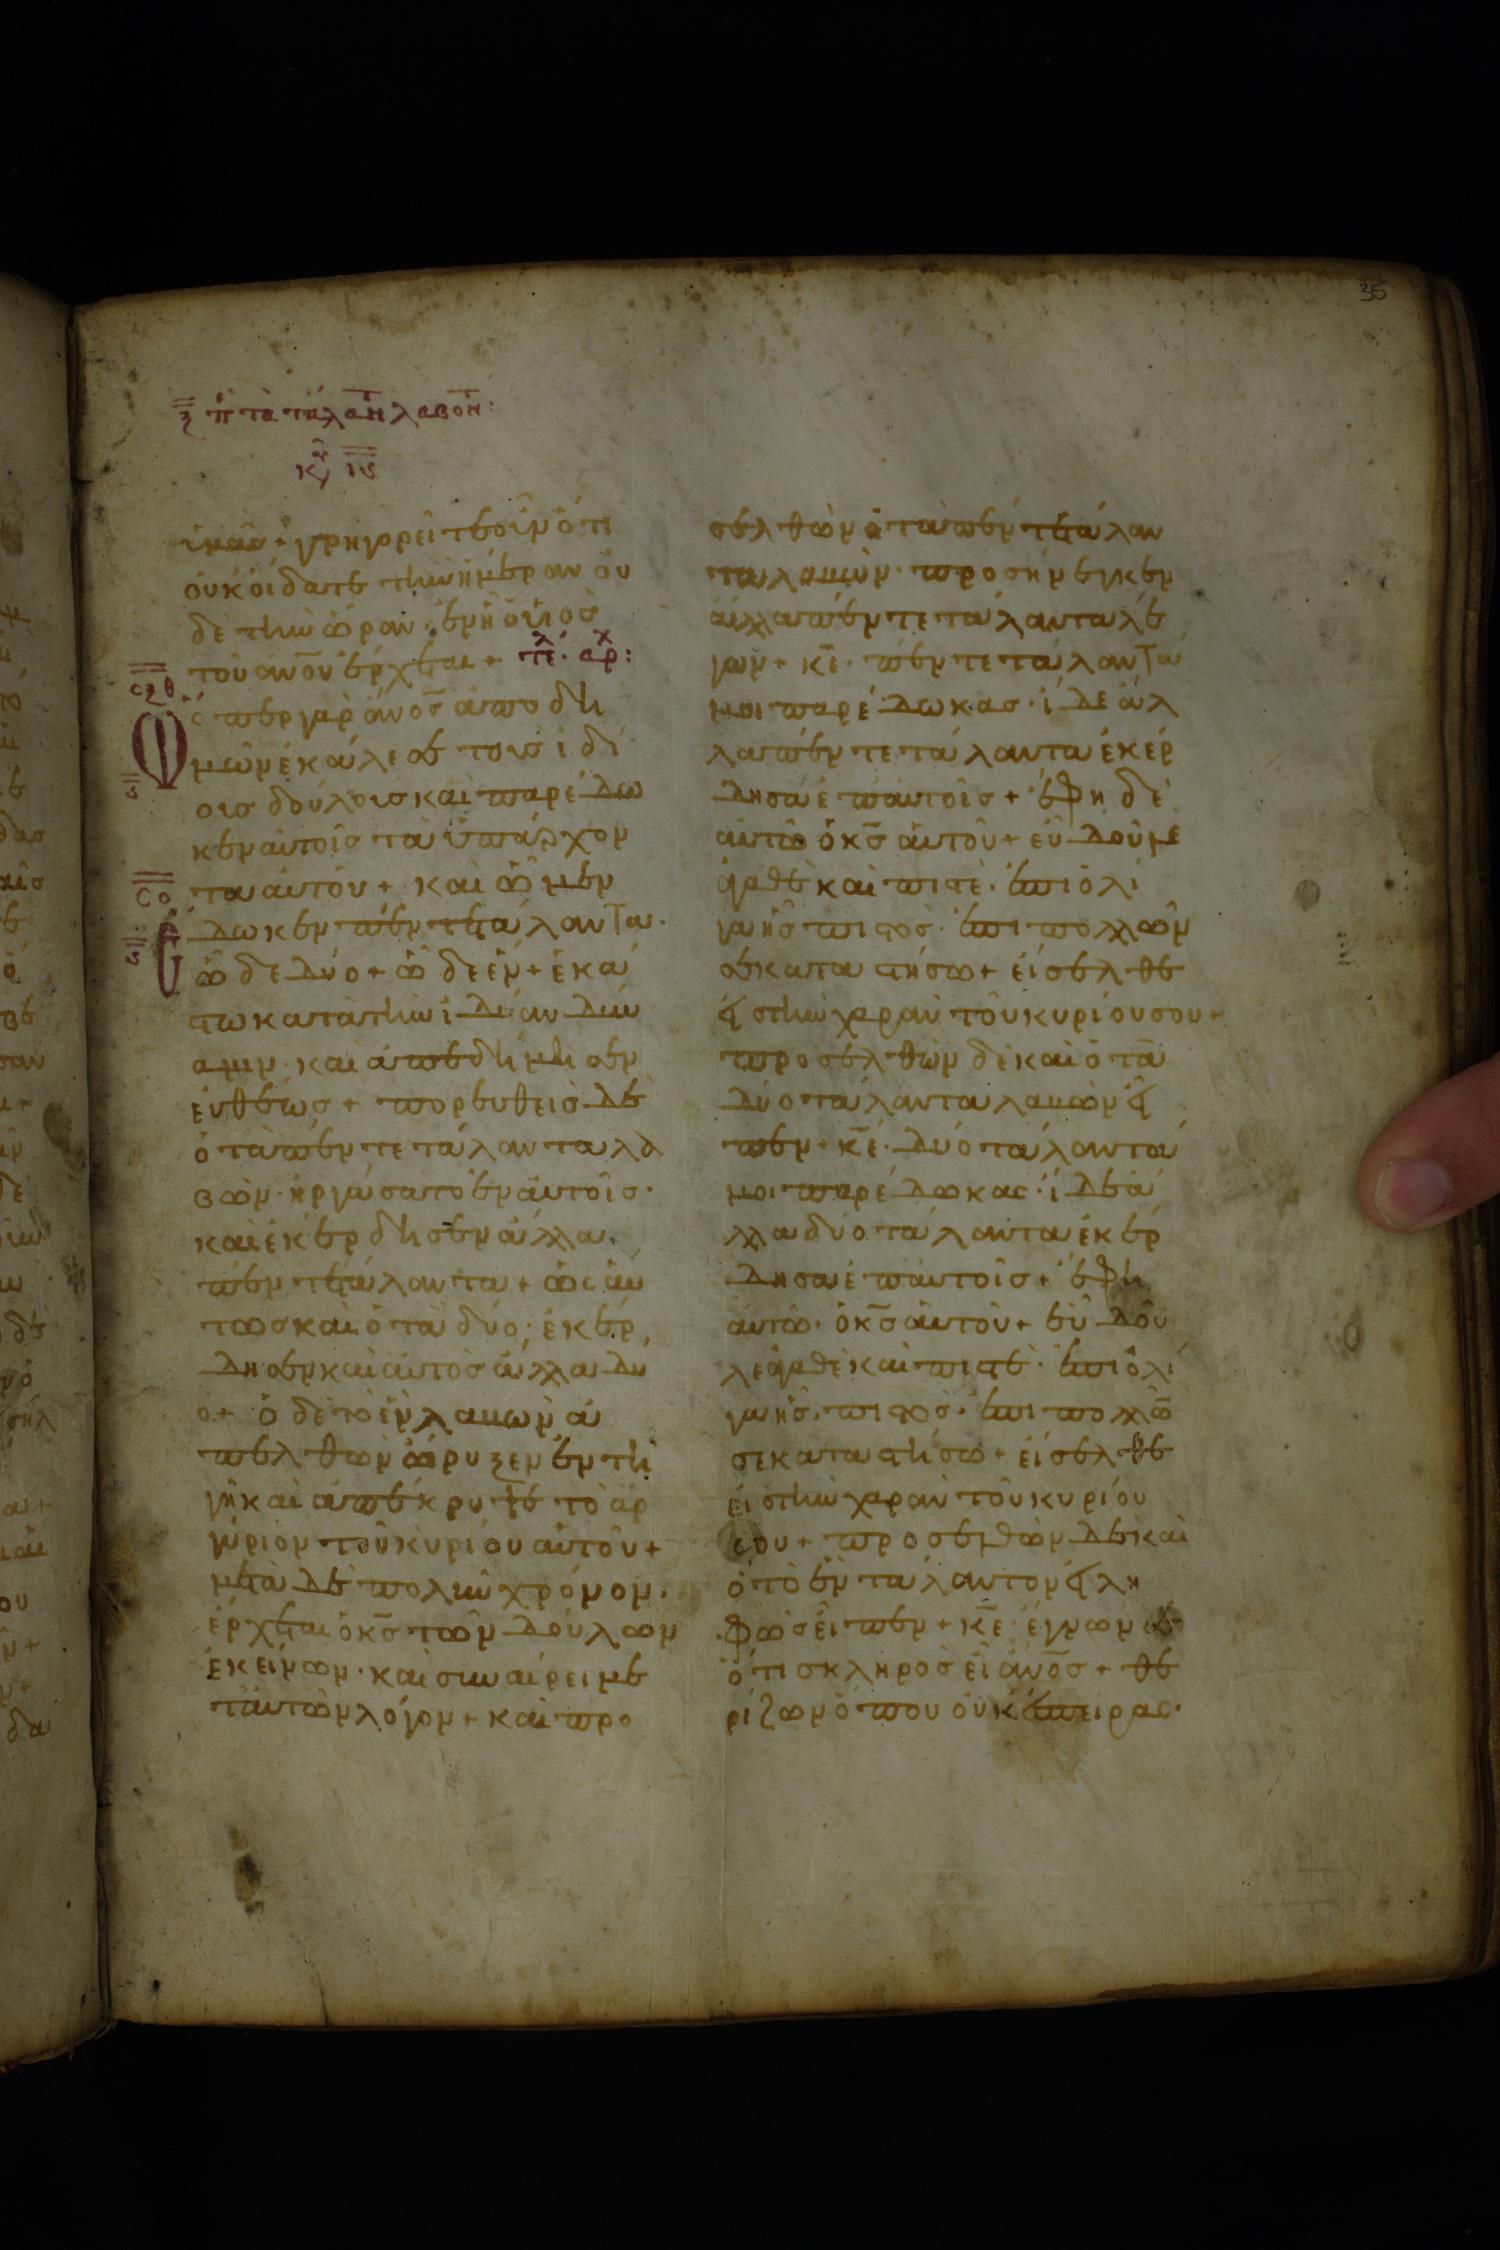 35
ξ π τα ταλαντ λαβοντ:
κυ ις
ὑμᾶς + γρηγορεῖτε οὖν ὅτι
οὐκ οἴδατε τὴν ἡμέραν οὐ
δὲ τὴν ὥραν· ἐν ἧ ὁ υἱὸς
τοῦ ανου ἔρχεται + τελ· αρχ:
σξθ
ς
ὥσπερ γὰρ ἄνος ἀποδη
μῶν ἐκάλεσε τοὺς ἰδί
οις δούλοις καὶ παρέδω
κεν αὐτοῖς τὰ ὑπάρχον
τα αὐτοῦ + καὶ ὧ μὲν
σο
ς
ἔδωκεν πέντε τάλαντα·
ὧ δὲ δύο + ὧ δὲ ἕν + ἑκά
στω κατὰ τὴν ἰδίαν δύν
αμιν· καὶ ἀπεδήμησεν
εὐθέως + πορευθεὶς δὲ
ὁ τὰ πέντε τάλαντα λα
βὼν· ἠργάσατο ἐν αὐτοῖς·
καὶ ἐκέρδησεν ἄλλα
πέντε τάλαντα + ὡσαύ
τως καὶ ὁ τὰ δύο· ἐκέρ
δησεν καὶ αὐτὸς ἄλλα δύ
ο + ὁ δὲ τὸ ἓν λαμὼν ἀ
πελθὼν ὤρυξεν ἐν τῆ
γῆ καὶ ἀπέκρυψε τὸ ἀρ
γύριον τοῦ κυρίου αὐτοῦ +
μετὰ δὲ πολὺν χρόνον·
ἔρχεται ὁ κς τῶν δούλων
ἐκείνων· καὶ συναίρει με
τ᾽ αὐτῶν λόγον + καὶ προ
σελθὼν ὁ τὰ πέντε τάλαν
τα λαμὼν· προσήνεγκεν
ἄλλα πέντε τάλαντα λέ
γων + κε· πέντε τάλαντα
μοι παρέδωκας· ἴδε ἄλ
λα πέντε τάλαντα ἐκέρ
δησα ἐπ᾽ αὐτοῖς + ἔφη δὲ
αὐτῶ ὁ κς αὐτοῦ + εὖ δοῦλε
ἀγαθὲ καὶ πιστέ· ἐπὶ ὀλί
γα ἦς πιστὸς· ἐπὶ πολλῶν
σε καταστήσω + εἴσελθε
εἰς τὴν χαρὰν τοῦ κυρίου σου +
προσελθὼν δὲ καὶ ὁ τὰ
δύο τάλαντα λαμὼν εἶ
πεν + κε· δύο τάλαντά
μοι παρέδωκας· ἴδε ἄ
λλα δύο τάλαντα ἐκέρ
δησα ἐπ᾽ αὐτοῖς + ἔφη
αὐτῶ· ὁ κς αὐτοῦ + εὖ δοῦ
λε ἀγαθὲ καὶ πιστὲ· ἐπὶ ὀλί
γα ἦς· πιστὸς· ἐπὶ πολλῶ
σε καταστήσω + εἴσελθε
εἰς τὴν χαρὰν τοῦ κυρίου
σου + προσελθὼν δὲ καὶ
ὁ τὸ ἓν τάλαντον εἰλη
φὼς εἶπεν + κε· ἔγνων σε
ὅτι σκληρὸς εἶ ἄνος + θε
ρίζων ὅπου οὐκ ἔσπειρας·